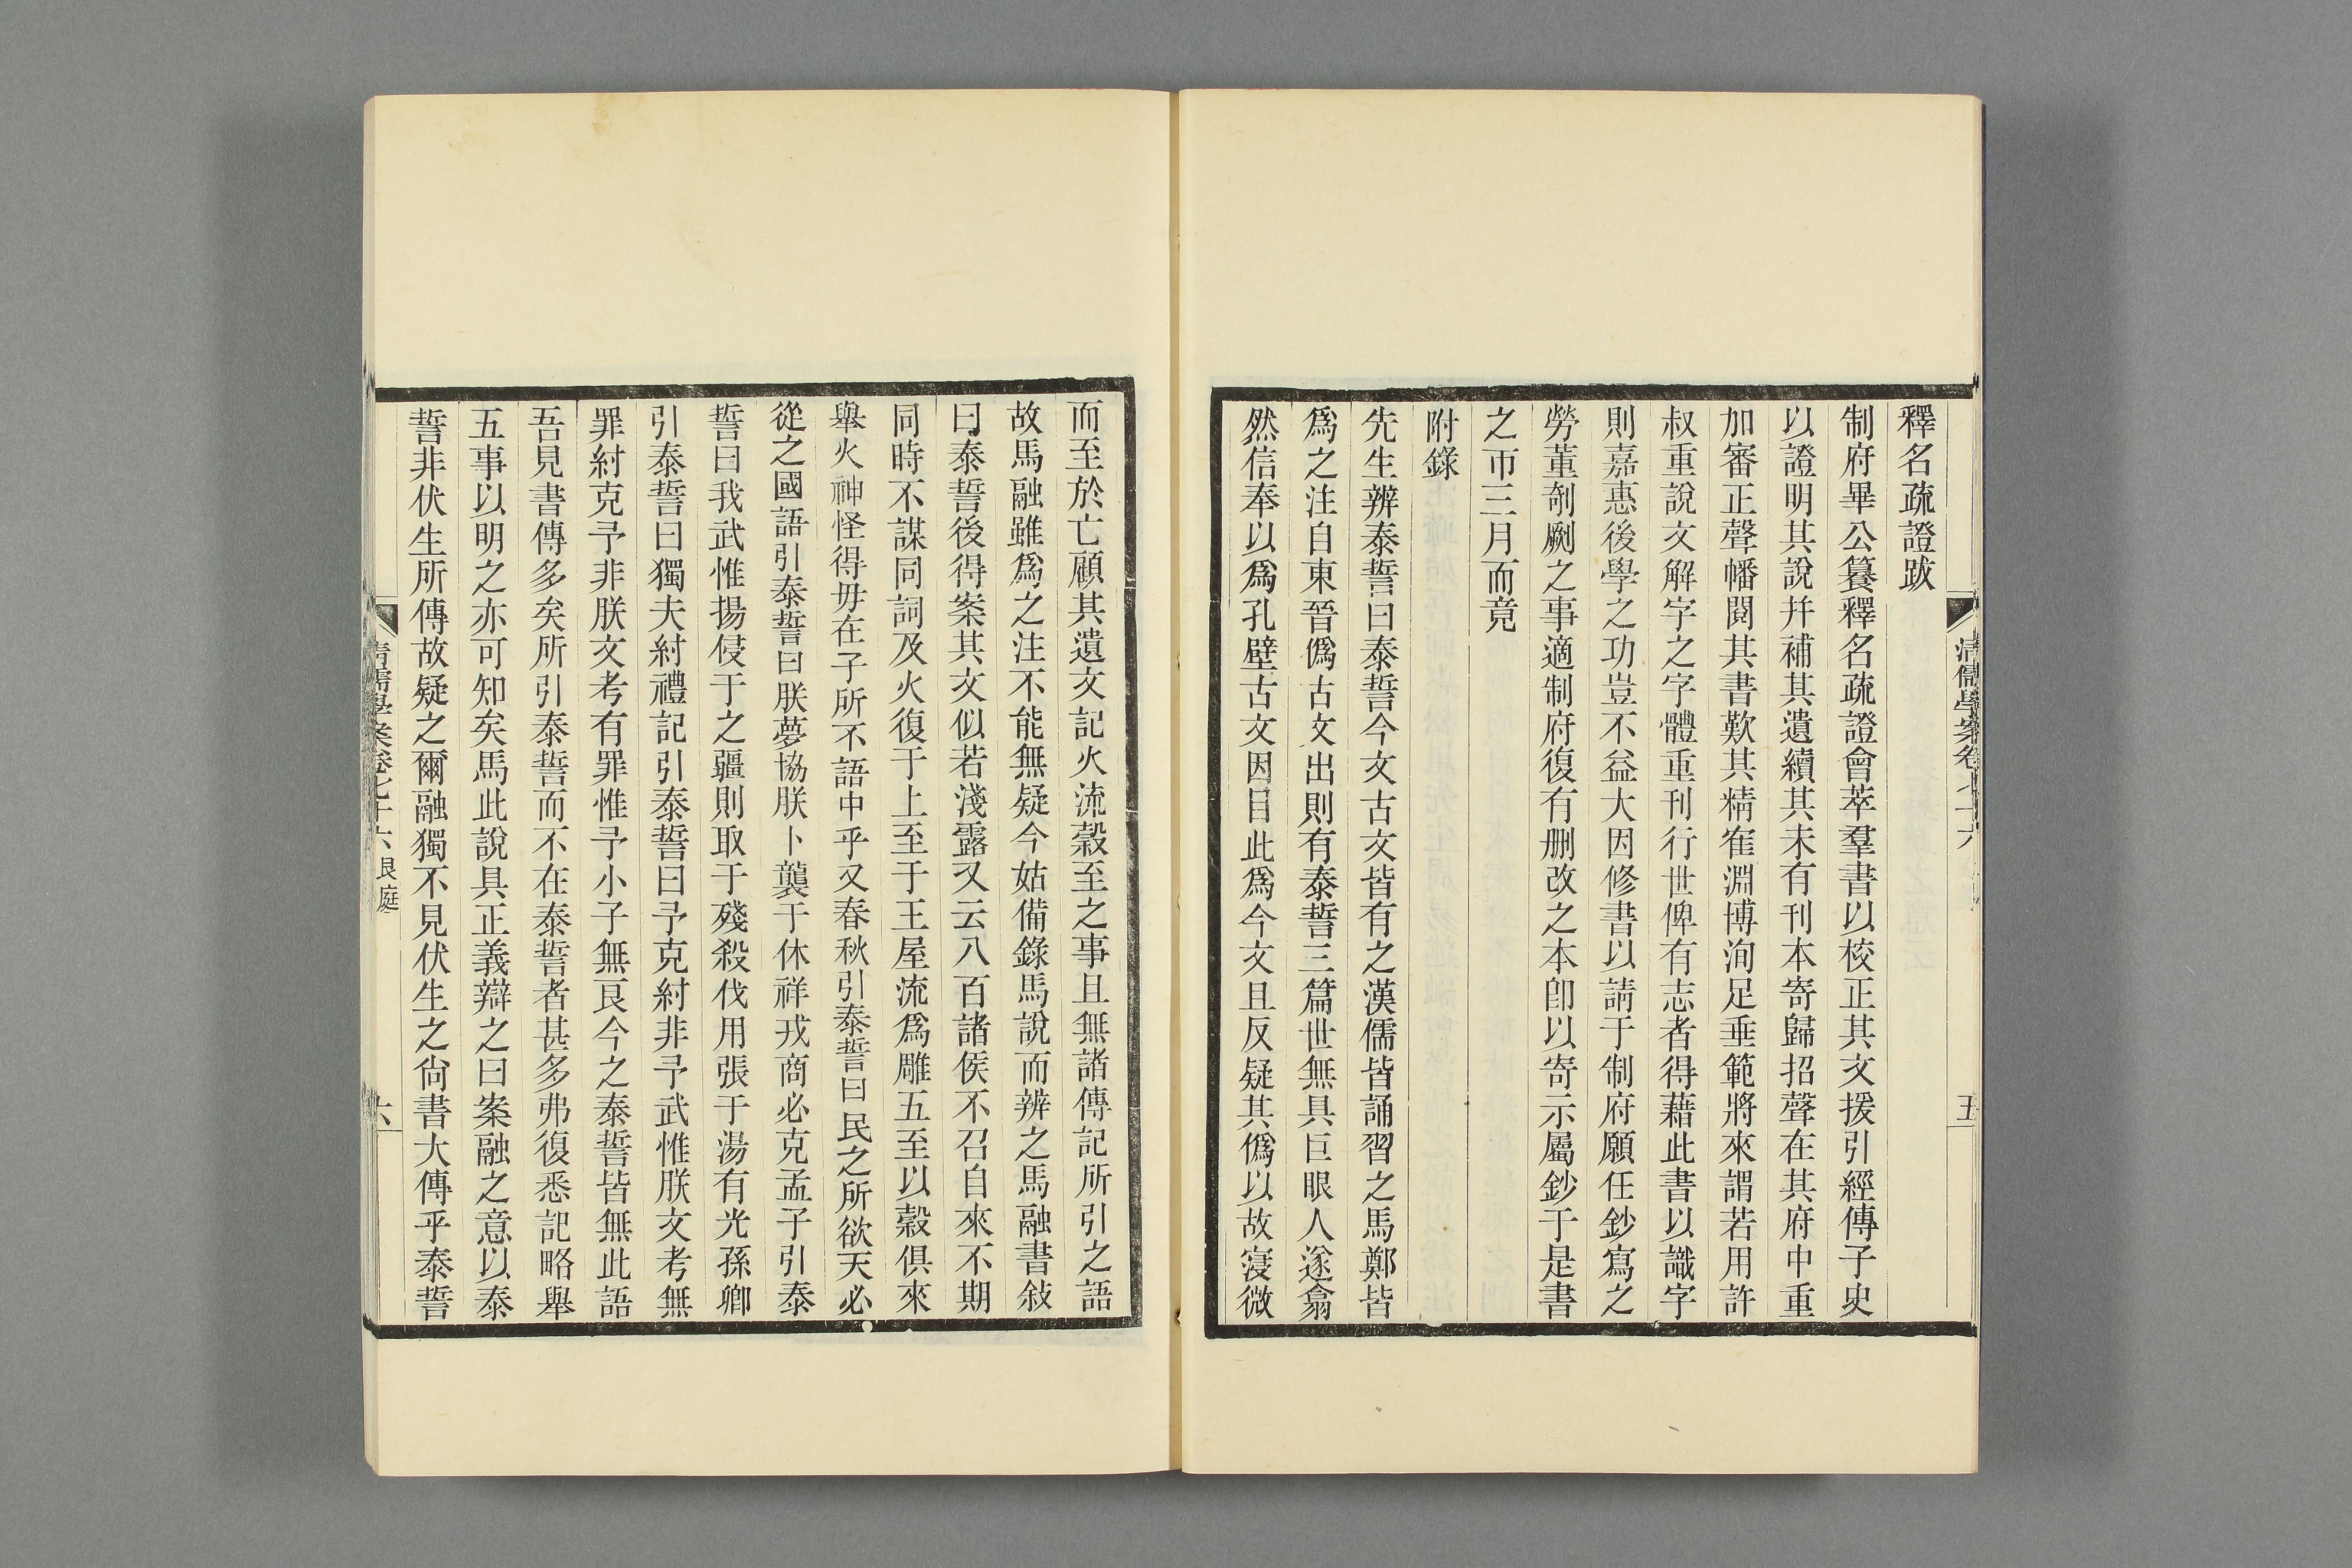 釋名疏證跋
制府畢公篹釋名疏證會萃羣書以校正其文援引經傳子史
以證明其說幷補其遺續其未有刊本寄歸招聲在其府中重
加審正聲幡閱其書歎其精隺淵博洵足垂範將來謂若用許
叔重說文解字之字體重刊行世俾有志者得藉此書以識字
則嘉惠後學之功豈不益大因修書以請于制府願任鈔寫之
勞董剞劂之事適制府復有刪改之本卽以寄示屬鈔于是書
之帀三月而竟
附錄
先生辨泰誓曰泰誓今文古文皆有之漢儒皆誦習之馬鄭皆
爲之注自東晉僞古文出則有泰誓三篇世無具巨眼人遂翕
然信奉以爲孔壁古文因目此爲今文且反疑其僞以故寖微
清儒學案卷七十六
五
而至於亡顧其遺文記火流穀至之事且無諸傳記所引之語
故馬融雖爲之注不能無疑今姑備錄馬說而辨之馬融書敍
曰泰誓後得案其文似若淺露又云八百諸侯不召自來不期
同時不謀同詞及火復于上至于王屋流爲雕五至以穀俱來
舉火神怪得毋在子所不語中乎又春秋引泰誓曰民之所欲天必
從之國語引泰誓曰朕夢協朕卜襲于休祥戎商必克孟子引泰
誓曰我武惟揚侵于之疆則取于殘殺伐用張于湯有光孫卿
引泰誓曰獨夫紂禮記引泰誓曰予克紂非予武惟朕文考無
罪紂克予非朕文考有罪惟予小子無良今之泰誓皆無此語
吾見書傳多矣所引泰誓而不在泰誓者甚多弗復悉記略舉
五事以明之亦可知矣馬此說具正義辯之曰案融之意以泰
誓非伏生所傳故疑之爾融獨不見伏生之尙書大傳乎泰誓
清儒學案卷七十六 艮庭
六